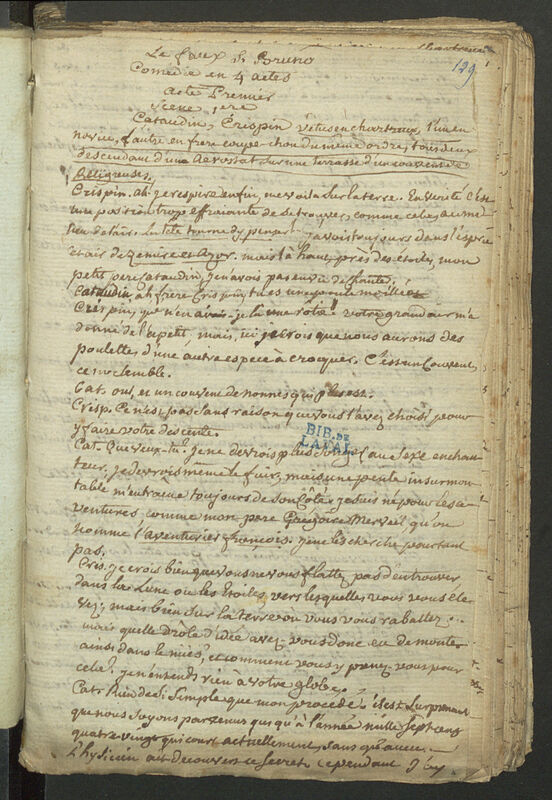 Chartreux
129
Le faux St Bruno
Comedie en 4 actes
acte Premier
Scene 1ere
Cataudin, Crispin vetus en chartreux, l'un en
novice, l'autre en frere coupe-chou du meme ordre, tous deux
descendant d'un aerostat sur une terrasse d'un couvent de
Religieuses.
Crispin. ah je respire enfin, me voila sur la terre. En verité c'est
une position trop effraiante de se trouver, comme cela, au mi
lieu de l'air. La tete tourne d'y penser j'avois toujours dans l'esprit
l'air de Zemire et Azor. mais la haut, près des etoiles, mon
petit pere Cataudin, je n'avois pas envie de chanter.
Cataudin. ah frere Crispin, tu es une poule moillée
Crispin, que n'en avois-je la une rotie! votre grand air m'a
donné de l'apetit, mais, ici je crois que nous aurons des
poulettes d'une autre espece à croquer. C'est un Couvent,
ce me semble.
Cat. oui, et un couvent de nonnes qui plus est.
Crisp. Ce n'est pas sans raison que vous l'avez choisi, pour
y faire votre descente.
BIB. DE
LAVAL
Cat. Que veux-tu? je ne devrois plus songer au sexe enchan
teur, je devrois même le fuir, mais une pente insurmon
table m'entraine toujours de son coté. je suis né pour les a
ventures comme mon pere Gregoire Merveil qu'on
nomme l'aventurier françois. je ne les cherche pourtant
pas.
Cris. je crois bien que vous ne vous flattez pas d'en trouver
dans la Lune ou les étoiles, vers lesquelles vous vous ele
vez; mais bien sur la terre où vous vous rabattez.
mais quelle drole d'idée avez-vous donc eu de monter
ainsi dans les nues, et comment vous y prenez-vous pour
cela? je n'entends rien a votre globe.
Cat. Rien de si simple que mon procedé. il est surprenant
que nous soyons parvenus jusqu'à l'année mille sept cens
quatre vingt qui court actuellement, sans qu'aucun
Phydicien ait decouvert ce secret. cependant j'en